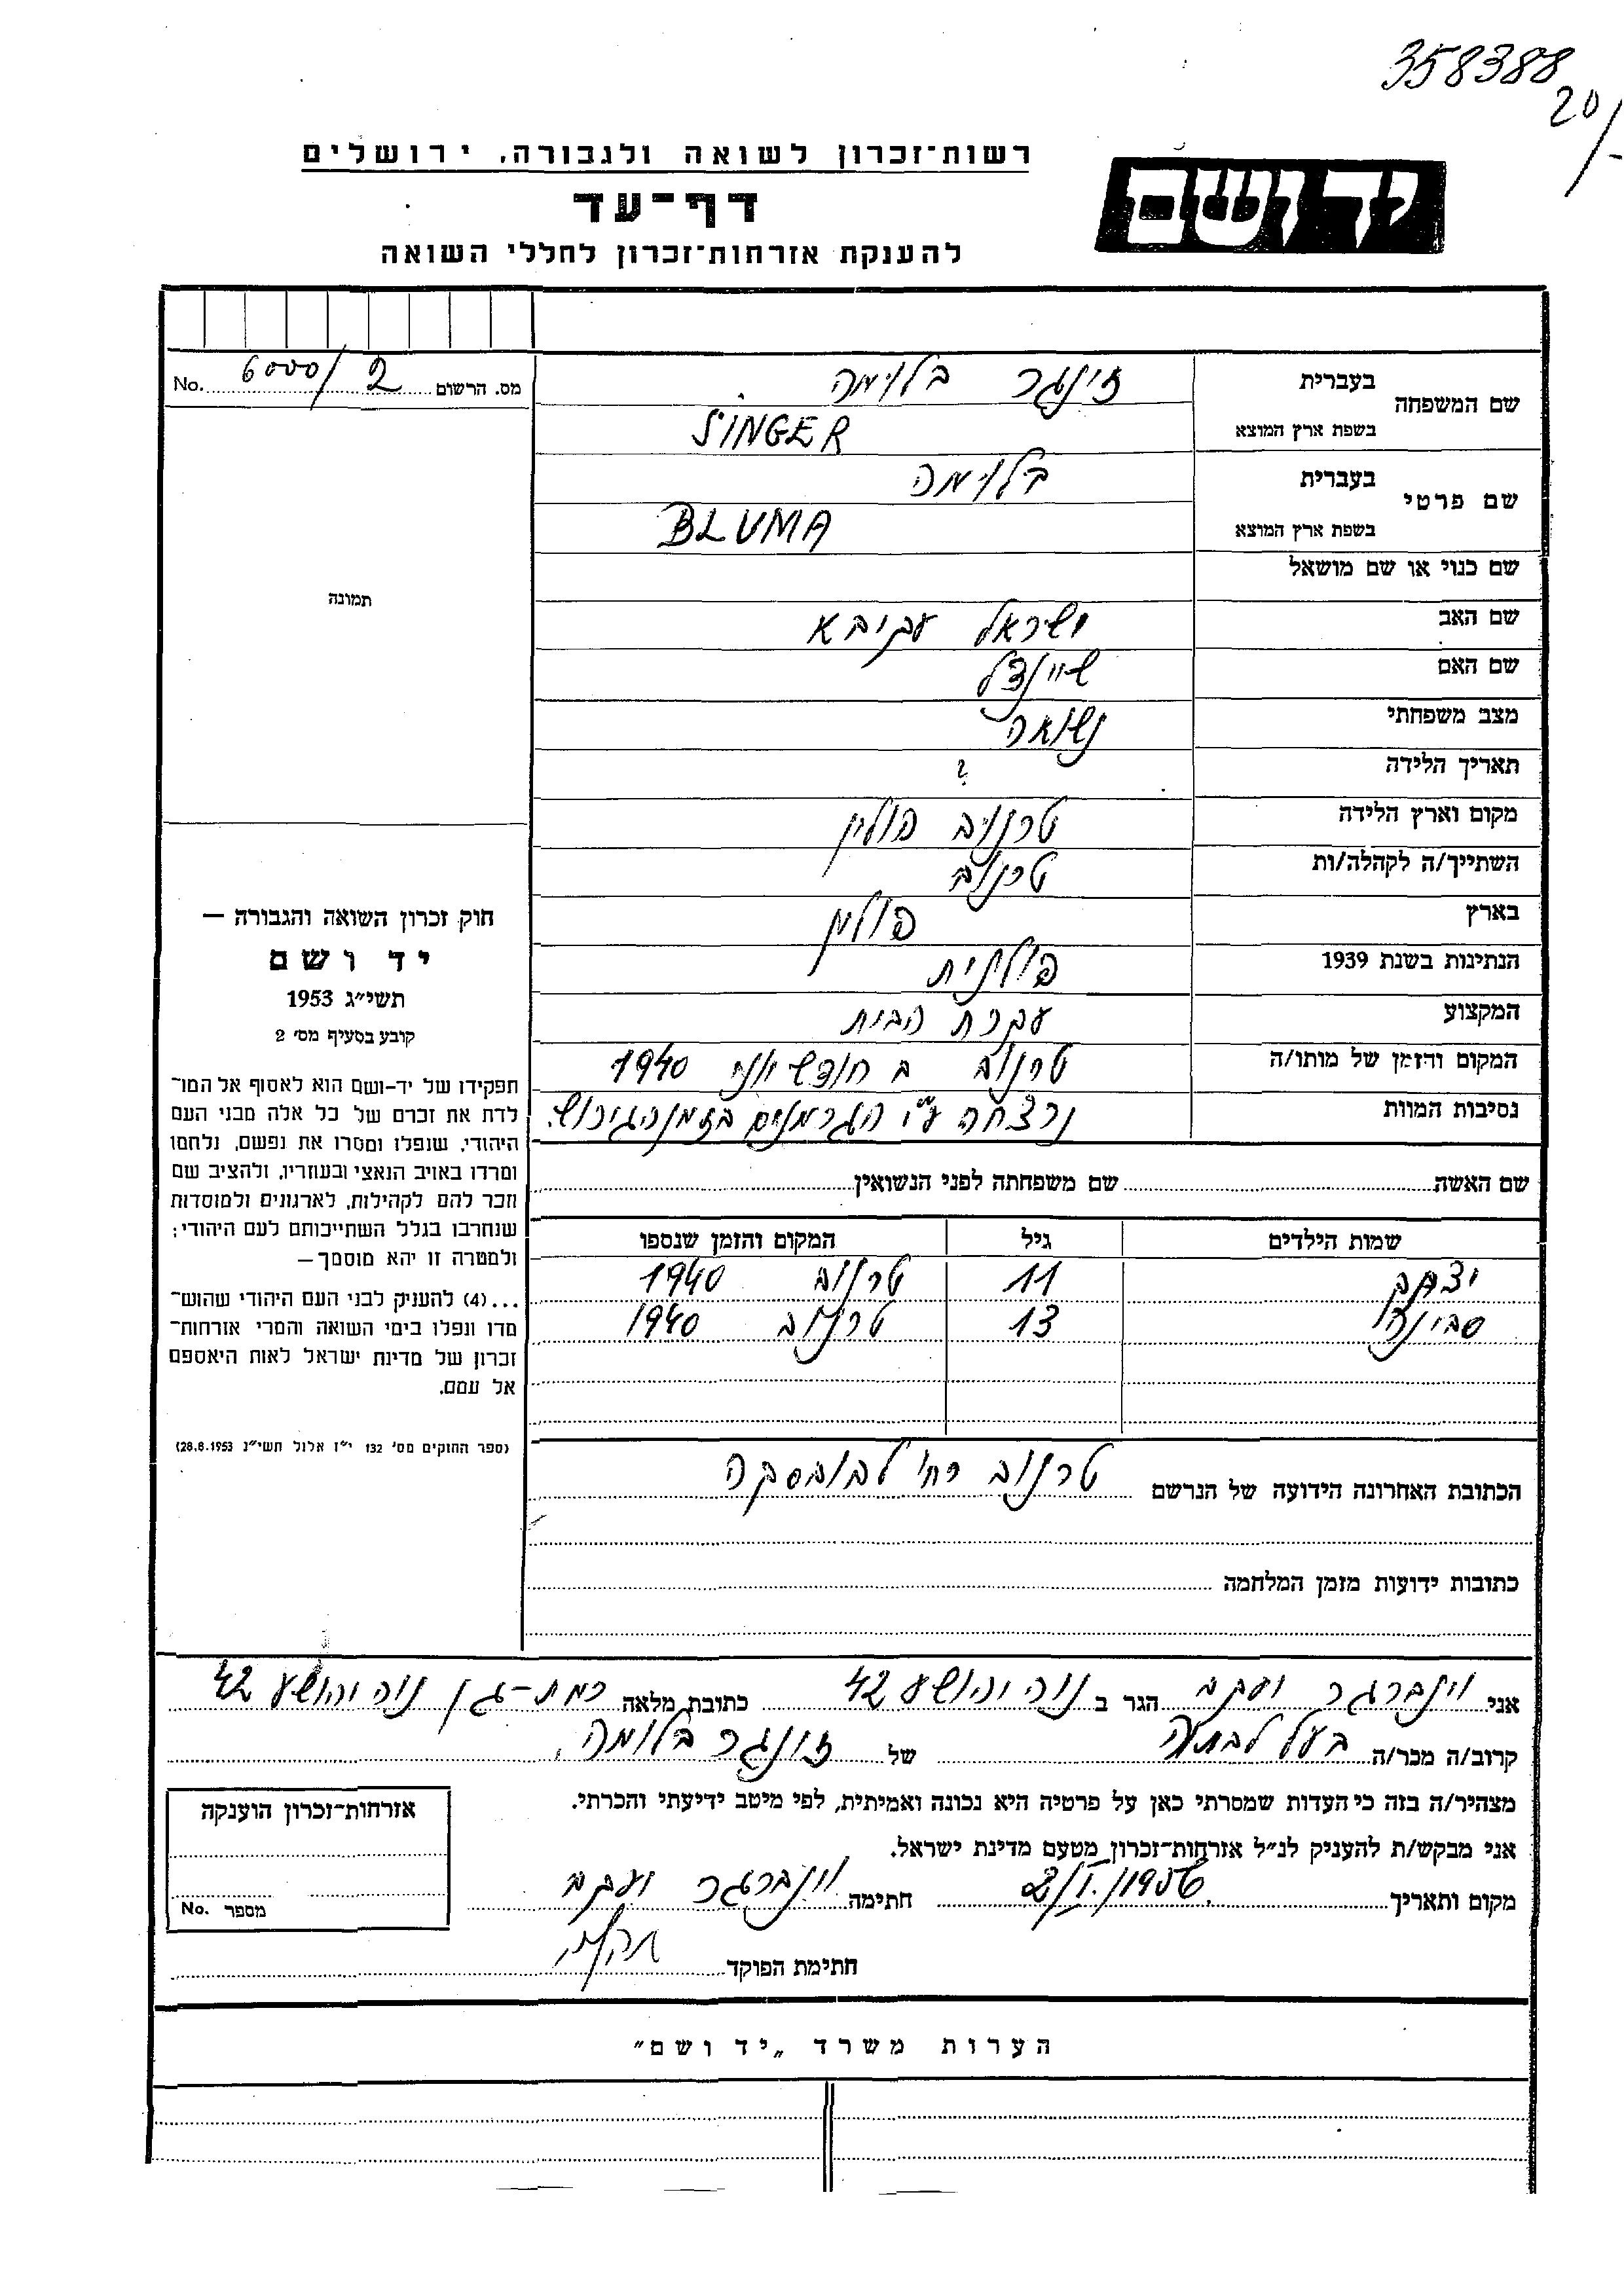 358388
20/-
רשות־זכרון לשואה ולגבורה, ירושלים
יד ושם
דף־עד
להענקת אזרחות־זכרון לחללי השואה
מס. הרשום 6000/2 No.
שם המשפחה בעברית זינגר בלוימה
בשפת ארץ המוצא SINGER
שם פרטי בעברית בלוימה
בשפת ארץ המוצא BLUMA
שם כנוי או שם מושאל
שם האב ישראל עקיבא
שם האם שיינדל
מצב משפחתי נשואה
תאריך הלידה ?
מקום וארץ הלידה טרנוב פולין
השתייך/ה לקהלה/ות טרנוב
בארץ פולין
הנתינות בשנת 1939 פולנית
המקצוע עקרת הבית
המקום והזמן של מותו/ה טרנוב ב חודש יוני 1940
נסיבות המוות נרצחה ע"י הגרמנים בזמן הגירוש.
תמונה
חוק זכרון השואה והגבורה —
יד ושם
תשי״ג 1953
קובע בסעיף מס׳ 2
תפקידו של יד-ושם הוא לאסוף אל המו־
לדת את זכרם של כל אלה מבני העם
היהודי, שנפלו ומסרו את נפשם, נלחמו
ומרדו באויב הנאצי ובעוזריו, ולהציב שם
וזכר להם לקהילות, לארגונים ולמוסדות
שנחרבו בגלל השתייכותם לעם היהודי;
ולמטרה זו יהא מוסמך—
...(4) להעניק לבני העם היהודי שהוש־
מדו ונפלו בימי השואה והמרי אזרחות־
זכרון של מדינת ישראל לאות היאספם
אל עמם.
(ספר החוקים מס׳ 132 י״ז אלול תשי״ג 28.8.1953)
שם האשה שם משפחתה לפני הנשואין
שמות הילדים גיל המקום והזמן שנספו
יעקב 11 טרנוב 1940
13 טרנוב 1940
הכתובת האחרונה הידועה של הנרשם טרנוב רח' לבובסקה
כתובות ידועות מזמן המלחמה
אני וינברגר יעקב הגר ב נוה יהושע 42 כתובת מלאה רמת-גן נוה יהושע 42
קרוב/ה מכר/ה בעל לבתה של זינגר בלומה
מצהיר/ה בזה כי העדות שמסרתי כאן על פרטיה היא נכונה ואמיתית, לפי מיטב ידיעתי והכרתי.
אני מבקש/ת להעניק לנ״ל אזרחות־זכרון מטעם מדינת ישראל.
מקום ותאריך 2/I./1956 חתימה וינברגר יעקב
חתימת הפוקד
אזרחות־זכרון הוענקה
מספר No.
הערות משרד „יד ושם״